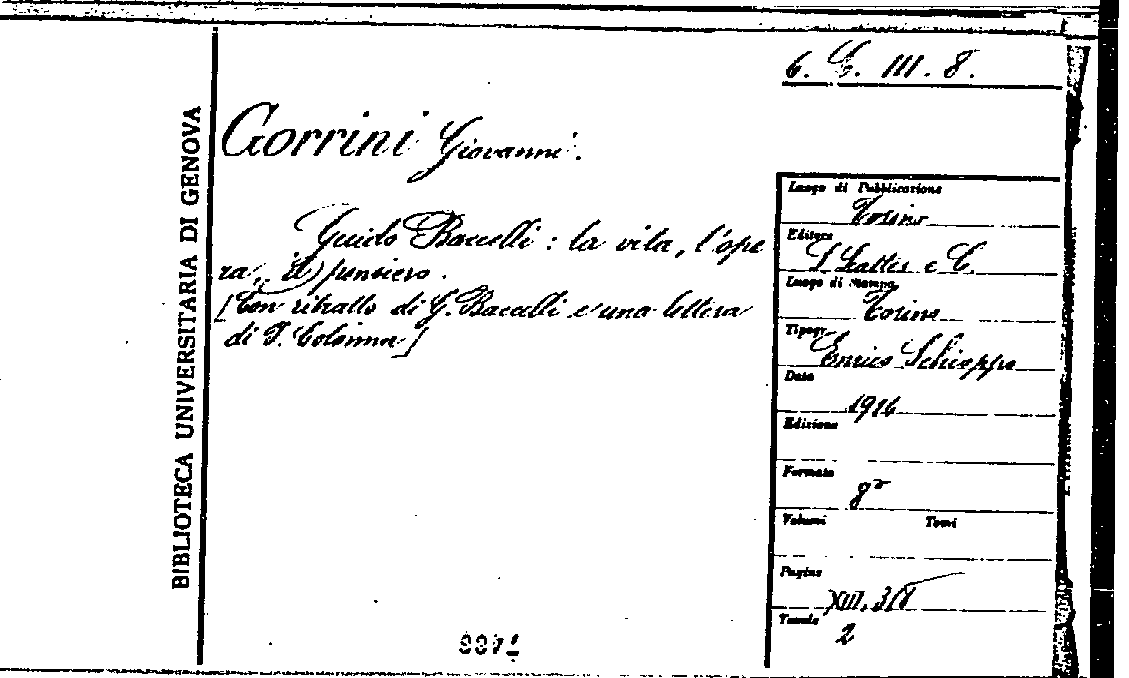 6. C. III. 8.
BIBLIOTECA UNIVERSITARIA DI GENOVA
Gorrini Giovanni.
Guido Baccelli : la vita, l'ope
ra, il pensiero.
[Con ritratto di G. Baccelli e una lettera
di P. Colonna]
Luogo di Pubblicazione
Torino
Editore
S Lattes e C.
Luogo di stampa
Torino
Tipogr.
Enrico Schioppo
Data
1916
Edizione
Formato
8º
Volumi Tomi
Pagine
XIII, 318
Tavole
2